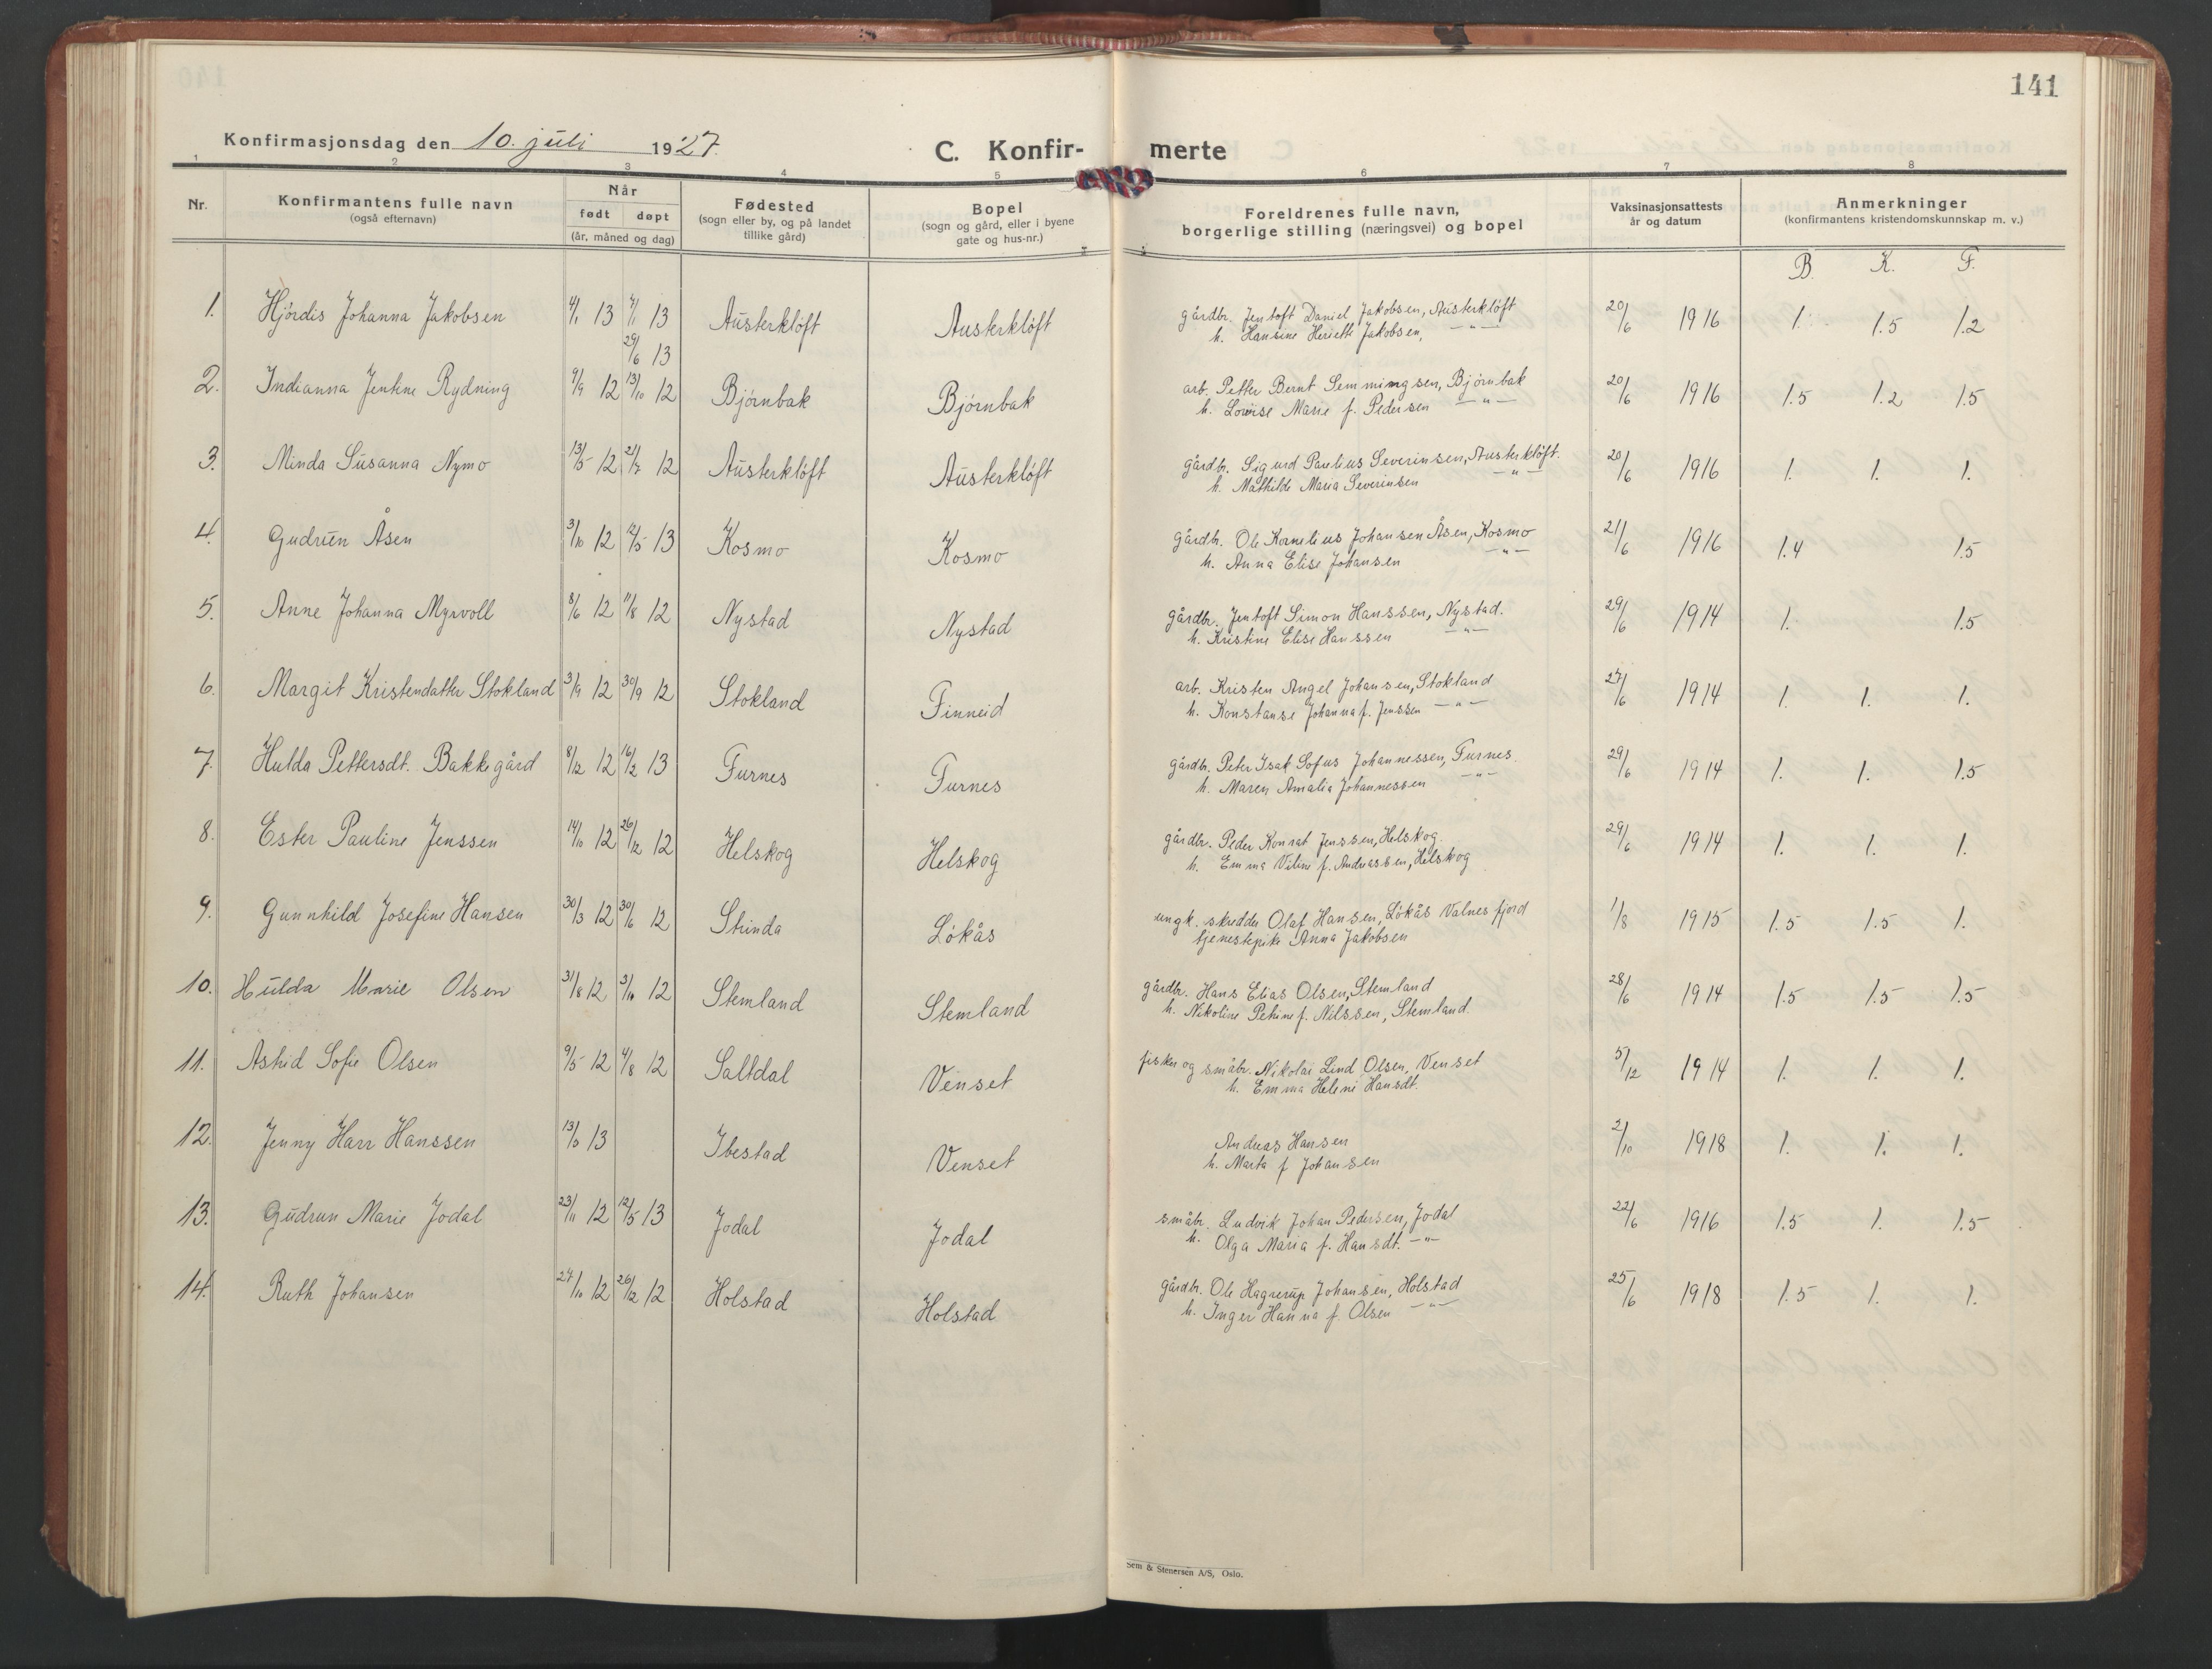 141
Konfirmasjonsdag den 10. juli 1927.
C. Konfir- merte
1 2 3 4 5 6 7 8
Nr. Konfirmantens fulle navn (også efternavn) Når født døpt (år, måned og dag) Fødested (sogn eller by, og på landet tillike gård) Bopel (sogn og gård, eller i byene gate og hus-nr.) Foreldrenes fulle navn, borgerlige stilling (næringsvei) og bopel Vaksinasjonsattests år og datum Anmerkninger (konfirmantens kristendomskunnskap m. v.)
B. K. F.
1. Hjördis Johanna Jakobsen 4/1 13 4/1 13 Austerklöft Austerklöft gårdbr. Jentoft Daniel Jakobsen, Austerklöft 20/6 1916 1. 1.5 1.2
29/6 13 h. Hansine Heriette Jakobsen, —"—
2. Indianna Jentine Rydning 9/9 12 13/10 12 Björnbak Björnbak arb. Petter Bernt Semmingsen, Björnbak 20/6 1916 1.5 1.2 1.5
h. Lovise Marie f. Pedersen —"—
3. Minda Susanna Nymo 13/5 12 21/7 12 Austerklöft Austerklöft gårdbr. Sigurd Paulius Severinsen, Austerklöft. 20/6 1916 1. 1. 1.
h. Mathilde Maria Severinsen —"—
4. Gudrun Åsen 3/10 12 12/5 13 Kosmo Kosmo gårdbr. Ole Kornelius Johansen Åsen, Kosmo 21/6 1916 1.4 1.5
h. Anna Elise Johansen —"—
5. Anne Johanna Myrvoll 8/6 12 11/8 12 Nystad Nystad gårdbr. Jentoft Simon Hanssen, Nystad. 29/6 1914 1. 1.5
h. Kristine Elise Hanssen —"—
6. Margit Kristendatter Stokland 3/9 12 30/9 12 Stokland Finneid arb. Kristen Angel Johansen, Stokland 27/6 1914 1. 1. 1.
h. Konstanse Johanna f. Jenssen —"—
7. Hulda Pettersdt. Bakkegård 8/12 12 16/2 13 Furnes Furnes gårdbr. Peter Isak Sofus Johannessen, Furnes. 29/6 1914 1. 1. 1.5
h. Maren Amalia Johannessen —"—
8. Ester Pauline Jenssen 14/10 12 26/12 12 Helskog Helskog gårdbr. Peder Konrat Jenssen, Helskog 29/6 1914 1. 1. 1.
h. Emma Viline f. Andreassen, Helskog
9. Gunnhild Josefine Hansen 30/3 12 30/6 12 Strinda Lökås ungk. skredder Olaf Hansen, Lökås Valnesfjord 1/8 1915 1.5 1.5 1.
tjenestepike Anna Jakobsen
10. Hulda Marie Olsen 31/8 12 3/11 12 Stemland Stemland gårdbr. Hans Elias Olsen, Stemland 28/6 1914 1.5 1.5 1.5
h. Nikoline Petrine f. Nilssen, Stemland.
11. Astrid Sofie Olsen 9/5 12 4/8 12 Saltdal Venset fisker og småbr. Nikolai Lind Olsen, Venset 5/12 1914 1. 1. 1.
h. Emma Heleni Hansdt.
12. Jenny Harr Hanssen 13 Ibestad Venset Andreas Hansen 2/10 1918 1. 1. 1.
h. Marta f Johansen
13. Gudrun Marie Jodal 23/11 12 12/5 13 Jodal Jodal småbr. Ludvik Johan Pedersen, Jodal 22/6 1916 1.5 1. 1.5
h. Olga Maria f. Hansdt. —"—
14. Ruth Johansen 27/10 12 26/12 12 Holstad Holstad gårdbr. Ole Hagerup Johansen, Holstad 25/6 1918 1.5 1. 1.
h. Inger Hanna f. Olsen —"—
Sem & Stenersen A/S, Oslo.